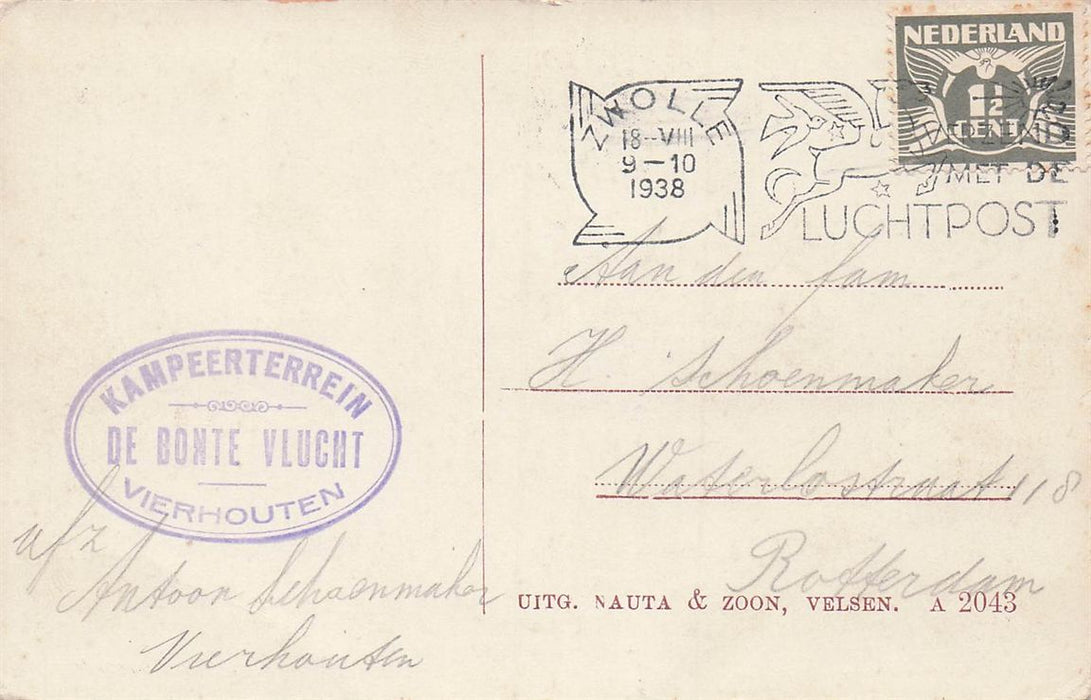 NEDERLAND
1½
CENT
ZWOLLE
18-VIII
9-10
1938
MET DE
LUCHTPOST
Aan den fam
H. Schoenmaker
Waterlostraat 118
Rotterdam
KAMPEERTERREIN
DE BONTE VLUCHT
VIERHOUTEN
afz
Antoon Schoenmaker
Vierhouten
UITG. NAUTA & ZOON, VELSEN. A 2043